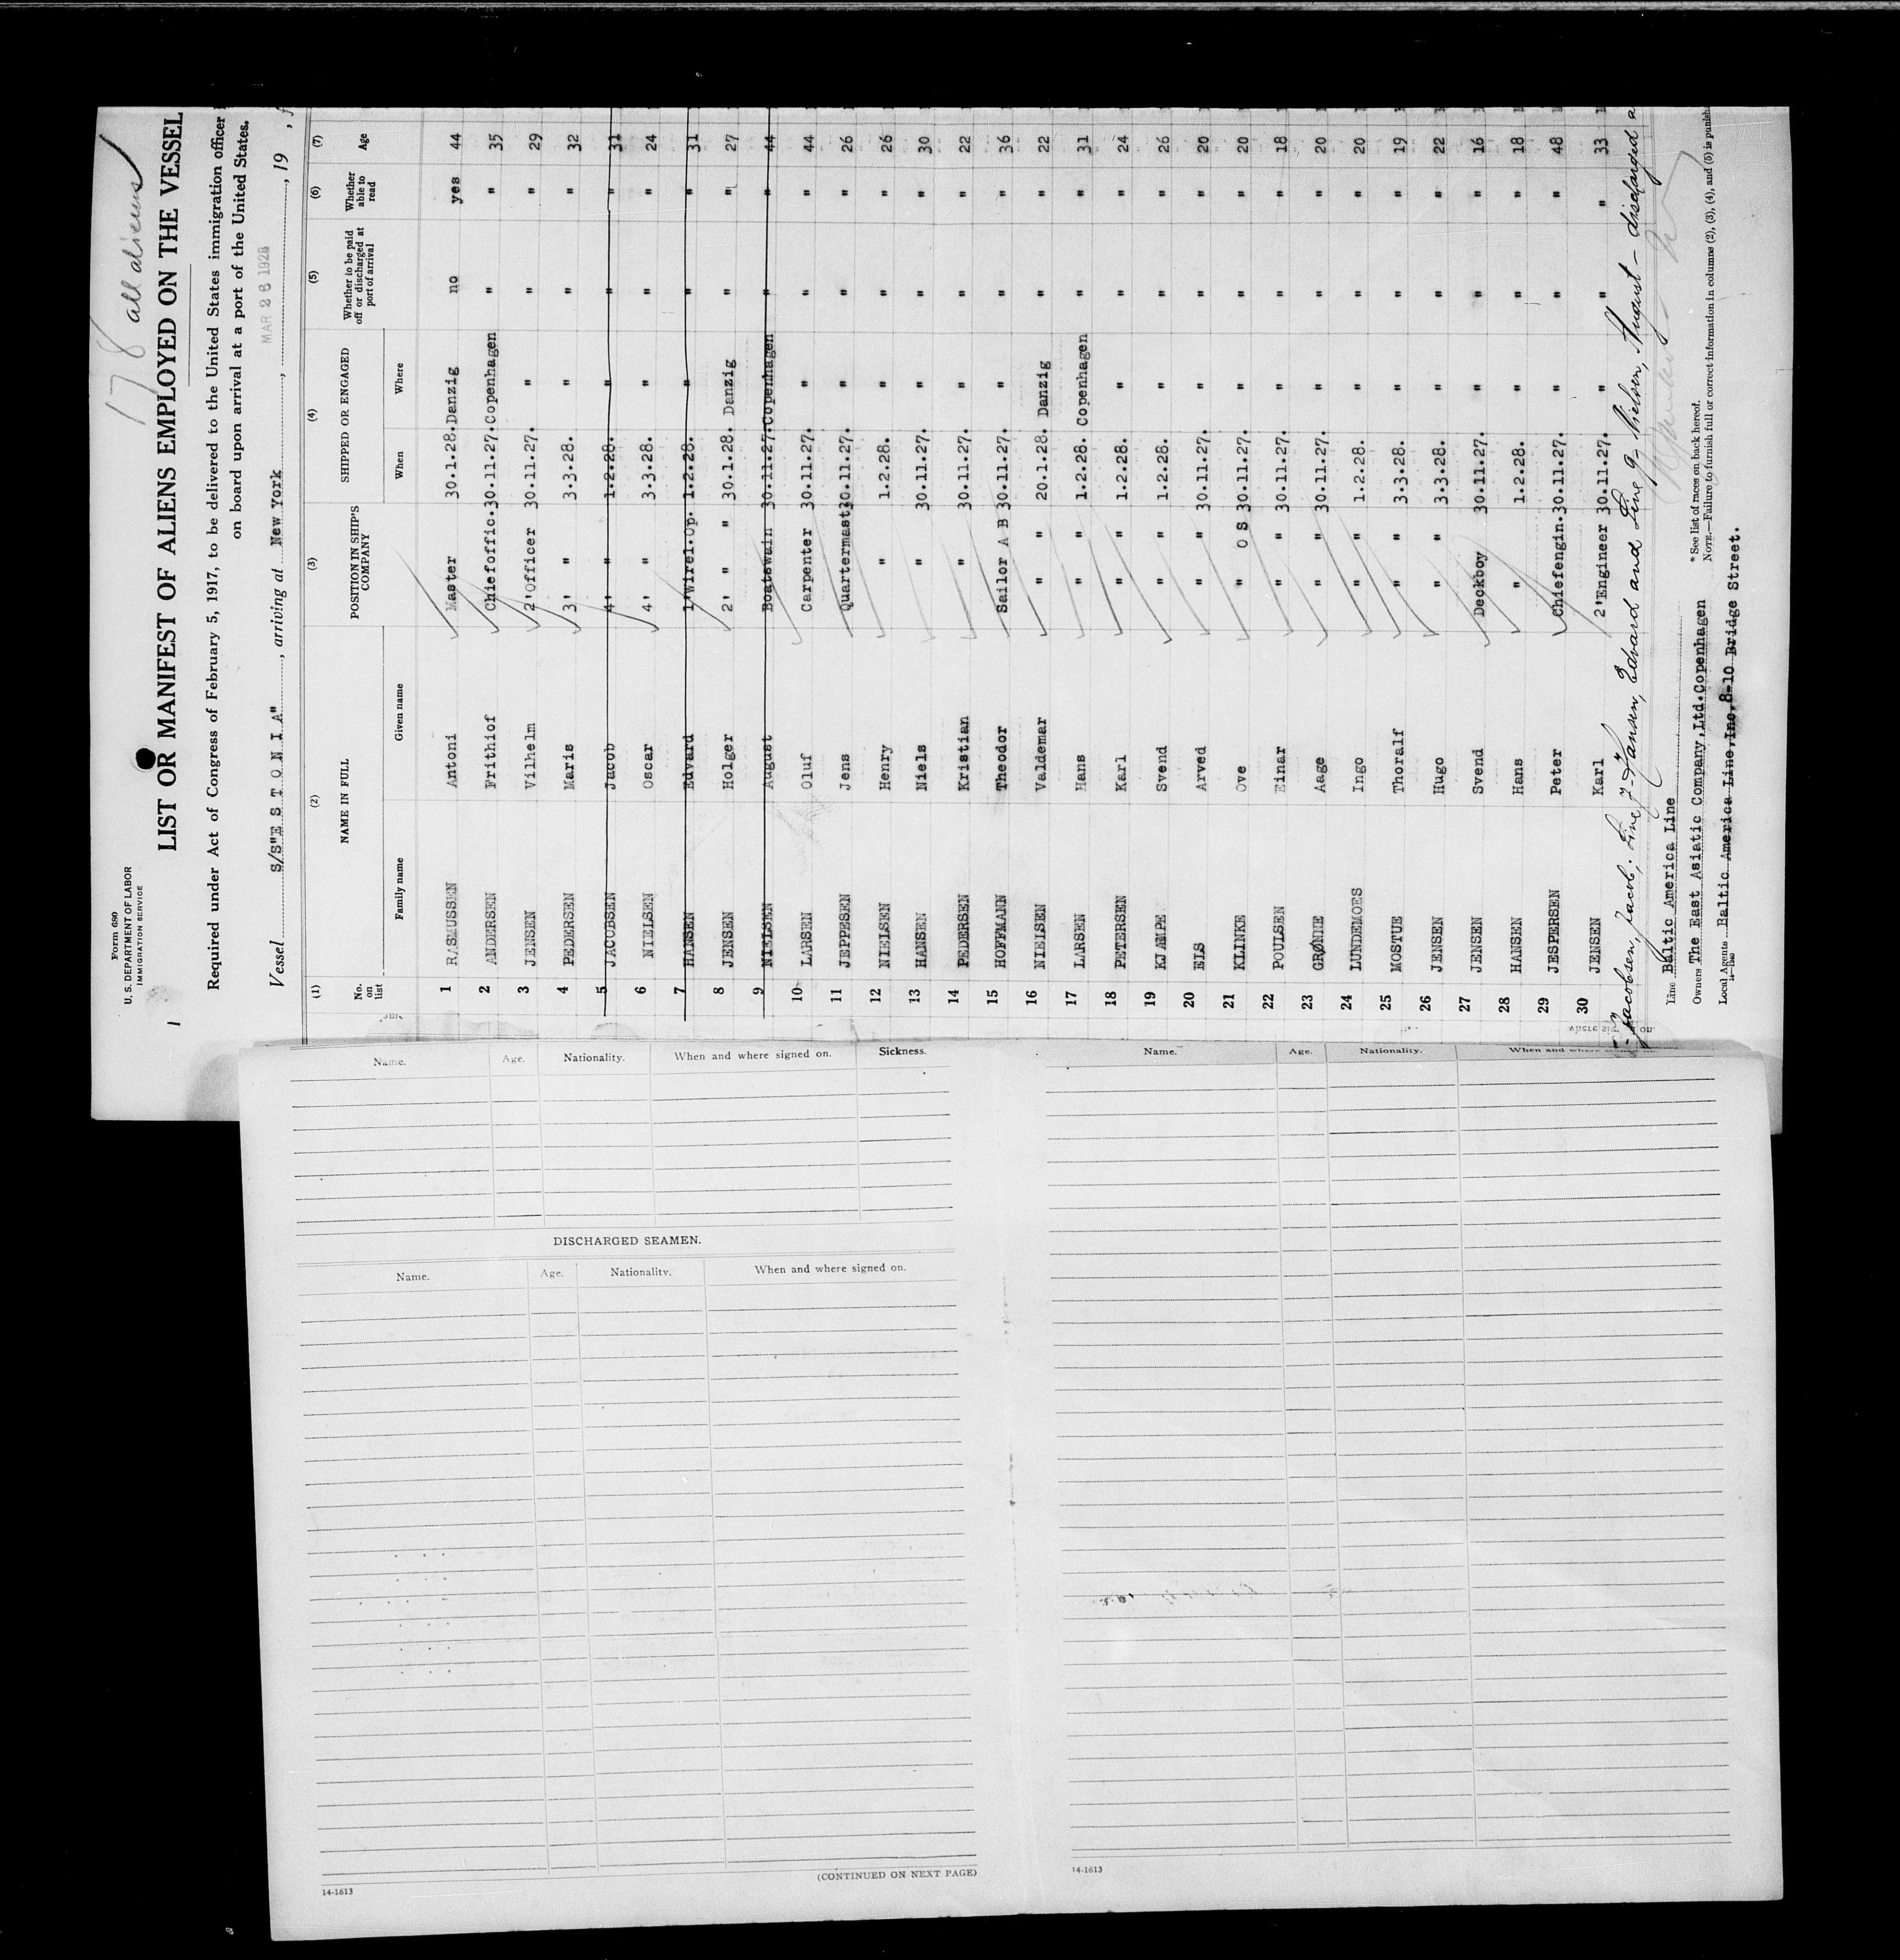 178 all aliens
Form 680
U. S. DEPARTMENT OF LABOR
IMMIGRATION SERVICE
LIST OR MANIFEST OF ALIENS EMPLOYED ON THE VESSEL
Required under Act of Congress of February 5, 1917, to be delivered to the United States immigration officer
on board upon arrival at a port of the United States.
MAR 26 1928
Vessel S/S"E S T O N I A", arriving at New York, , 19 , f
(1) (2) (3) (4) (5) (6) (7)
No. on list NAME IN FULL POSITION IN SHIP'S COMPANY SHIPPED OR ENGAGED Whether to be paid off or discharged at port of arrival Whether able to read Age
Family name Given name When Where
1 RASMUSSEN Antoni Master 30.1.28. Danzig no yes 44
2 ANDERSEN Frithiof Chiefoffic. 30.11.27. Copenhagen " " 35
3 JENSEN Vilhelm 2'Officer 30.11.27. " " " 29
4 PEDERSEN Maris 3' " 3.3.28. " " " 32
5 JACOBSEN Jacob 4' " 1.2.28. " " " 31
6 NIELSEN Oscar 4' " 3.3.28. " " " 24
7 HANSEN Edvard 1'Wirel.Op. 1.2.28. " " " 31
8 JENSEN Holger 2' " " 30.1.28. Danzig " " 27
9 NIELSEN August Boatswain 30.11.27. Copenhagen " " 44
10 LARSEN Oluf Carpenter 30.11.27. " " " 44
11 JEPPESEN Jens Quartermast. 30.11.27. " " " 26
12 NIELSEN Henry " 1.2.28. " " " 26
13 HANSEN Niels " 30.11.27. " " " 30
14 PEDERSEN Kristian " 30.11.27. " " " 22
15 HOFFMANN Theodor Sailor A B 30.11.27. " " " 36
16 NIELSEN Valdemar " " 20.1.28. Danzig " " 22
17 LARSEN Hans " " 1.2.28. Copenhagen " " 31
18 PETERSEN Karl " " 1.2.28. " " " 24
19 KJÆMPE Svend " " 1.2.28. " " " 26
20 ELS Arved " " 30.11.27. " " " 20
21 KLINKE Ove " O S 30.11.27. " " " 20
22 POULSEN Einar " " 30.11.27. " " " 18
23 GRØNNE Aage " " 30.11.27. " " " 20
24 LUNDEMOES Ingo " " 1.2.28. " " " 20
25 MOSTUE Thoralf " " 3.3.28. " " " 19
26 JENSEN Hugo " " 3.3.28. " " " 22
27 JENSEN Svend Deckboy 30.11.27. " " " 16
28 HANSEN Hans " 1.2.28. " " " 18
29 JESPERSEN Peter Chiefengin. 30.11.27. " " " 48
30 JENSEN Karl 2'Engineer 30.11.27. " " " 33
Jacobsen, Jacob; Line 7- Hansen, Edvard and Line 9- Nielsen, August - discharged a
Line Baltic America Line
Owners The East Asiatic Company, Ltd. Copenhagen
Local Agents Baltic America Line, Inc, 8-10 Bridge Street.
*See list of races on back hereof.
NOTE.—Failure to furnish full or correct information in columns (2), (3), (4), and (5) is punish
Name. Age. Nationality. When and where signed on. Sickness.
DISCHARGED SEAMEN.
Name. Age. Nationality. When and where signed on.
(CONTINUED ON NEXT PAGE)
14-1613
Name. Age. Nationality. When and where signed on.
14-1613